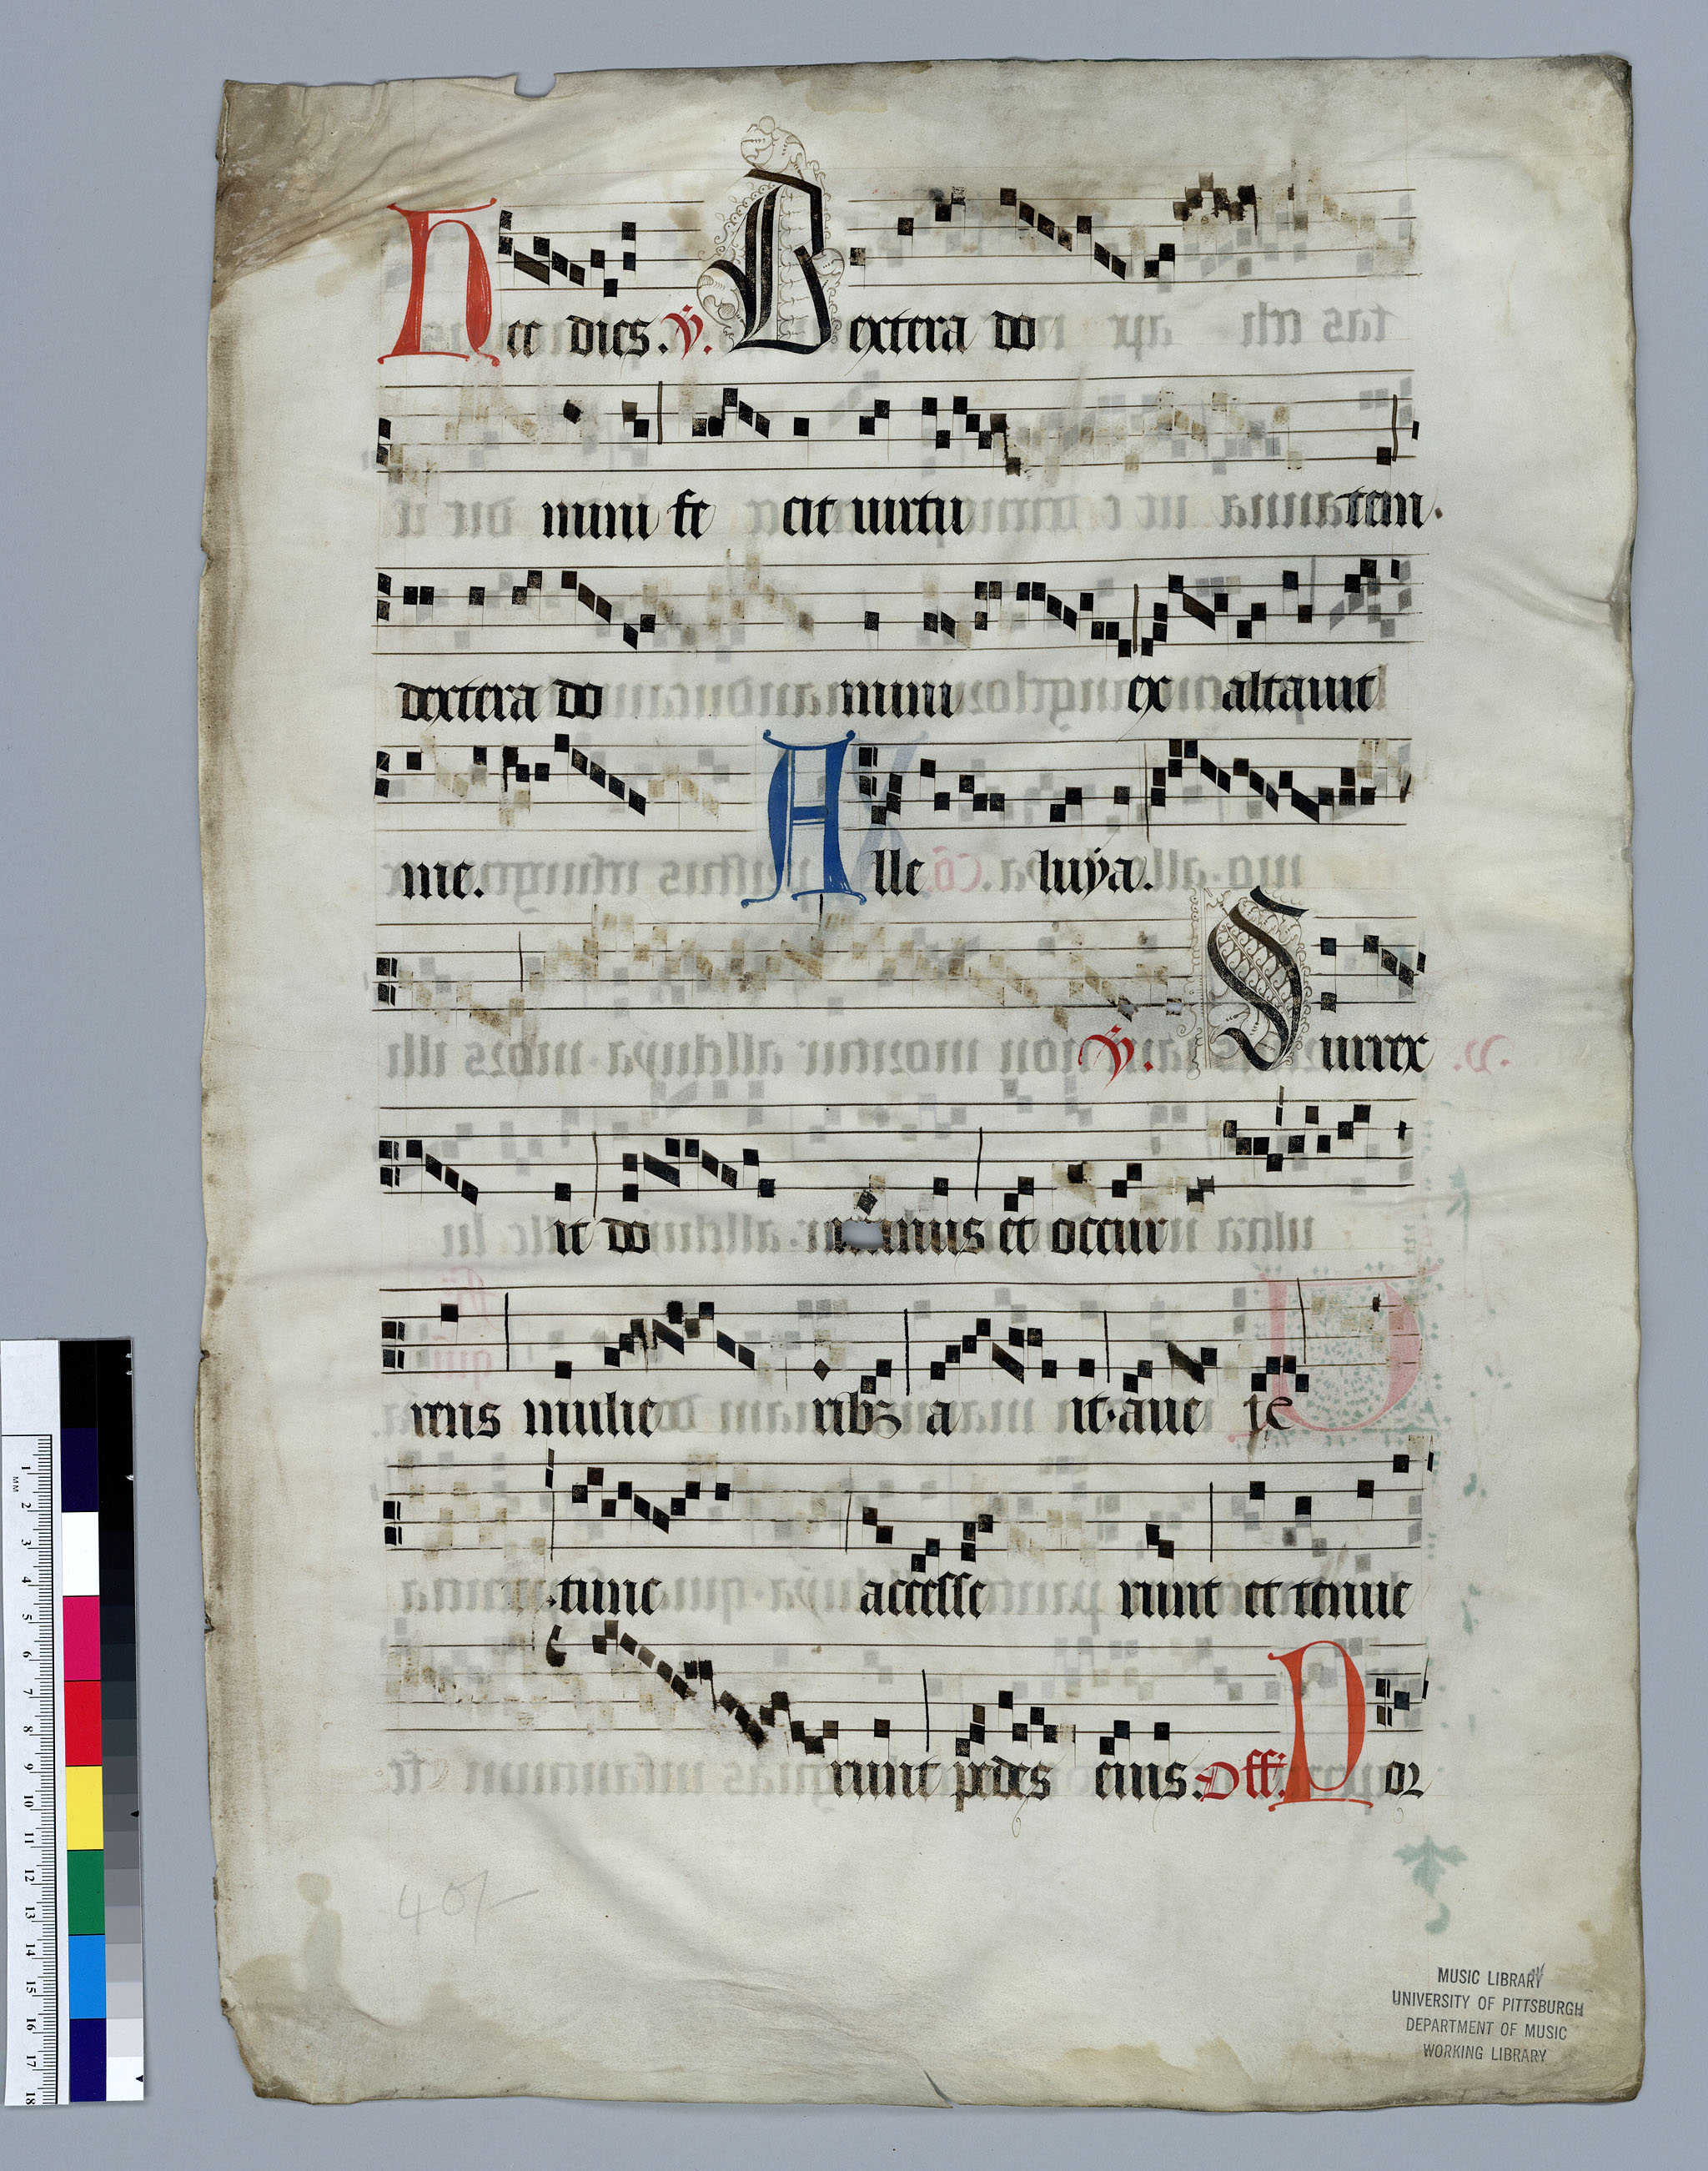 Hec dies. V. Dextera do
mini fe cit uirtu tem.
dextera do mini ex altauit
me. Alle luya.
V. Surrex
it do minus et occur
rens mulie ribz a it. aue
tunc accesse runt et tenue
runt pedes eius. Off. Dor
40/-
MUSIC LIBRARY
UNIVERSITY OF PITTSBURGH
DEPARTMENT OF MUSIC
WORKING LIBRARY
MM
1
2
3
4
5
6
7
8
9
10
11
12
13
14
15
16
17
18